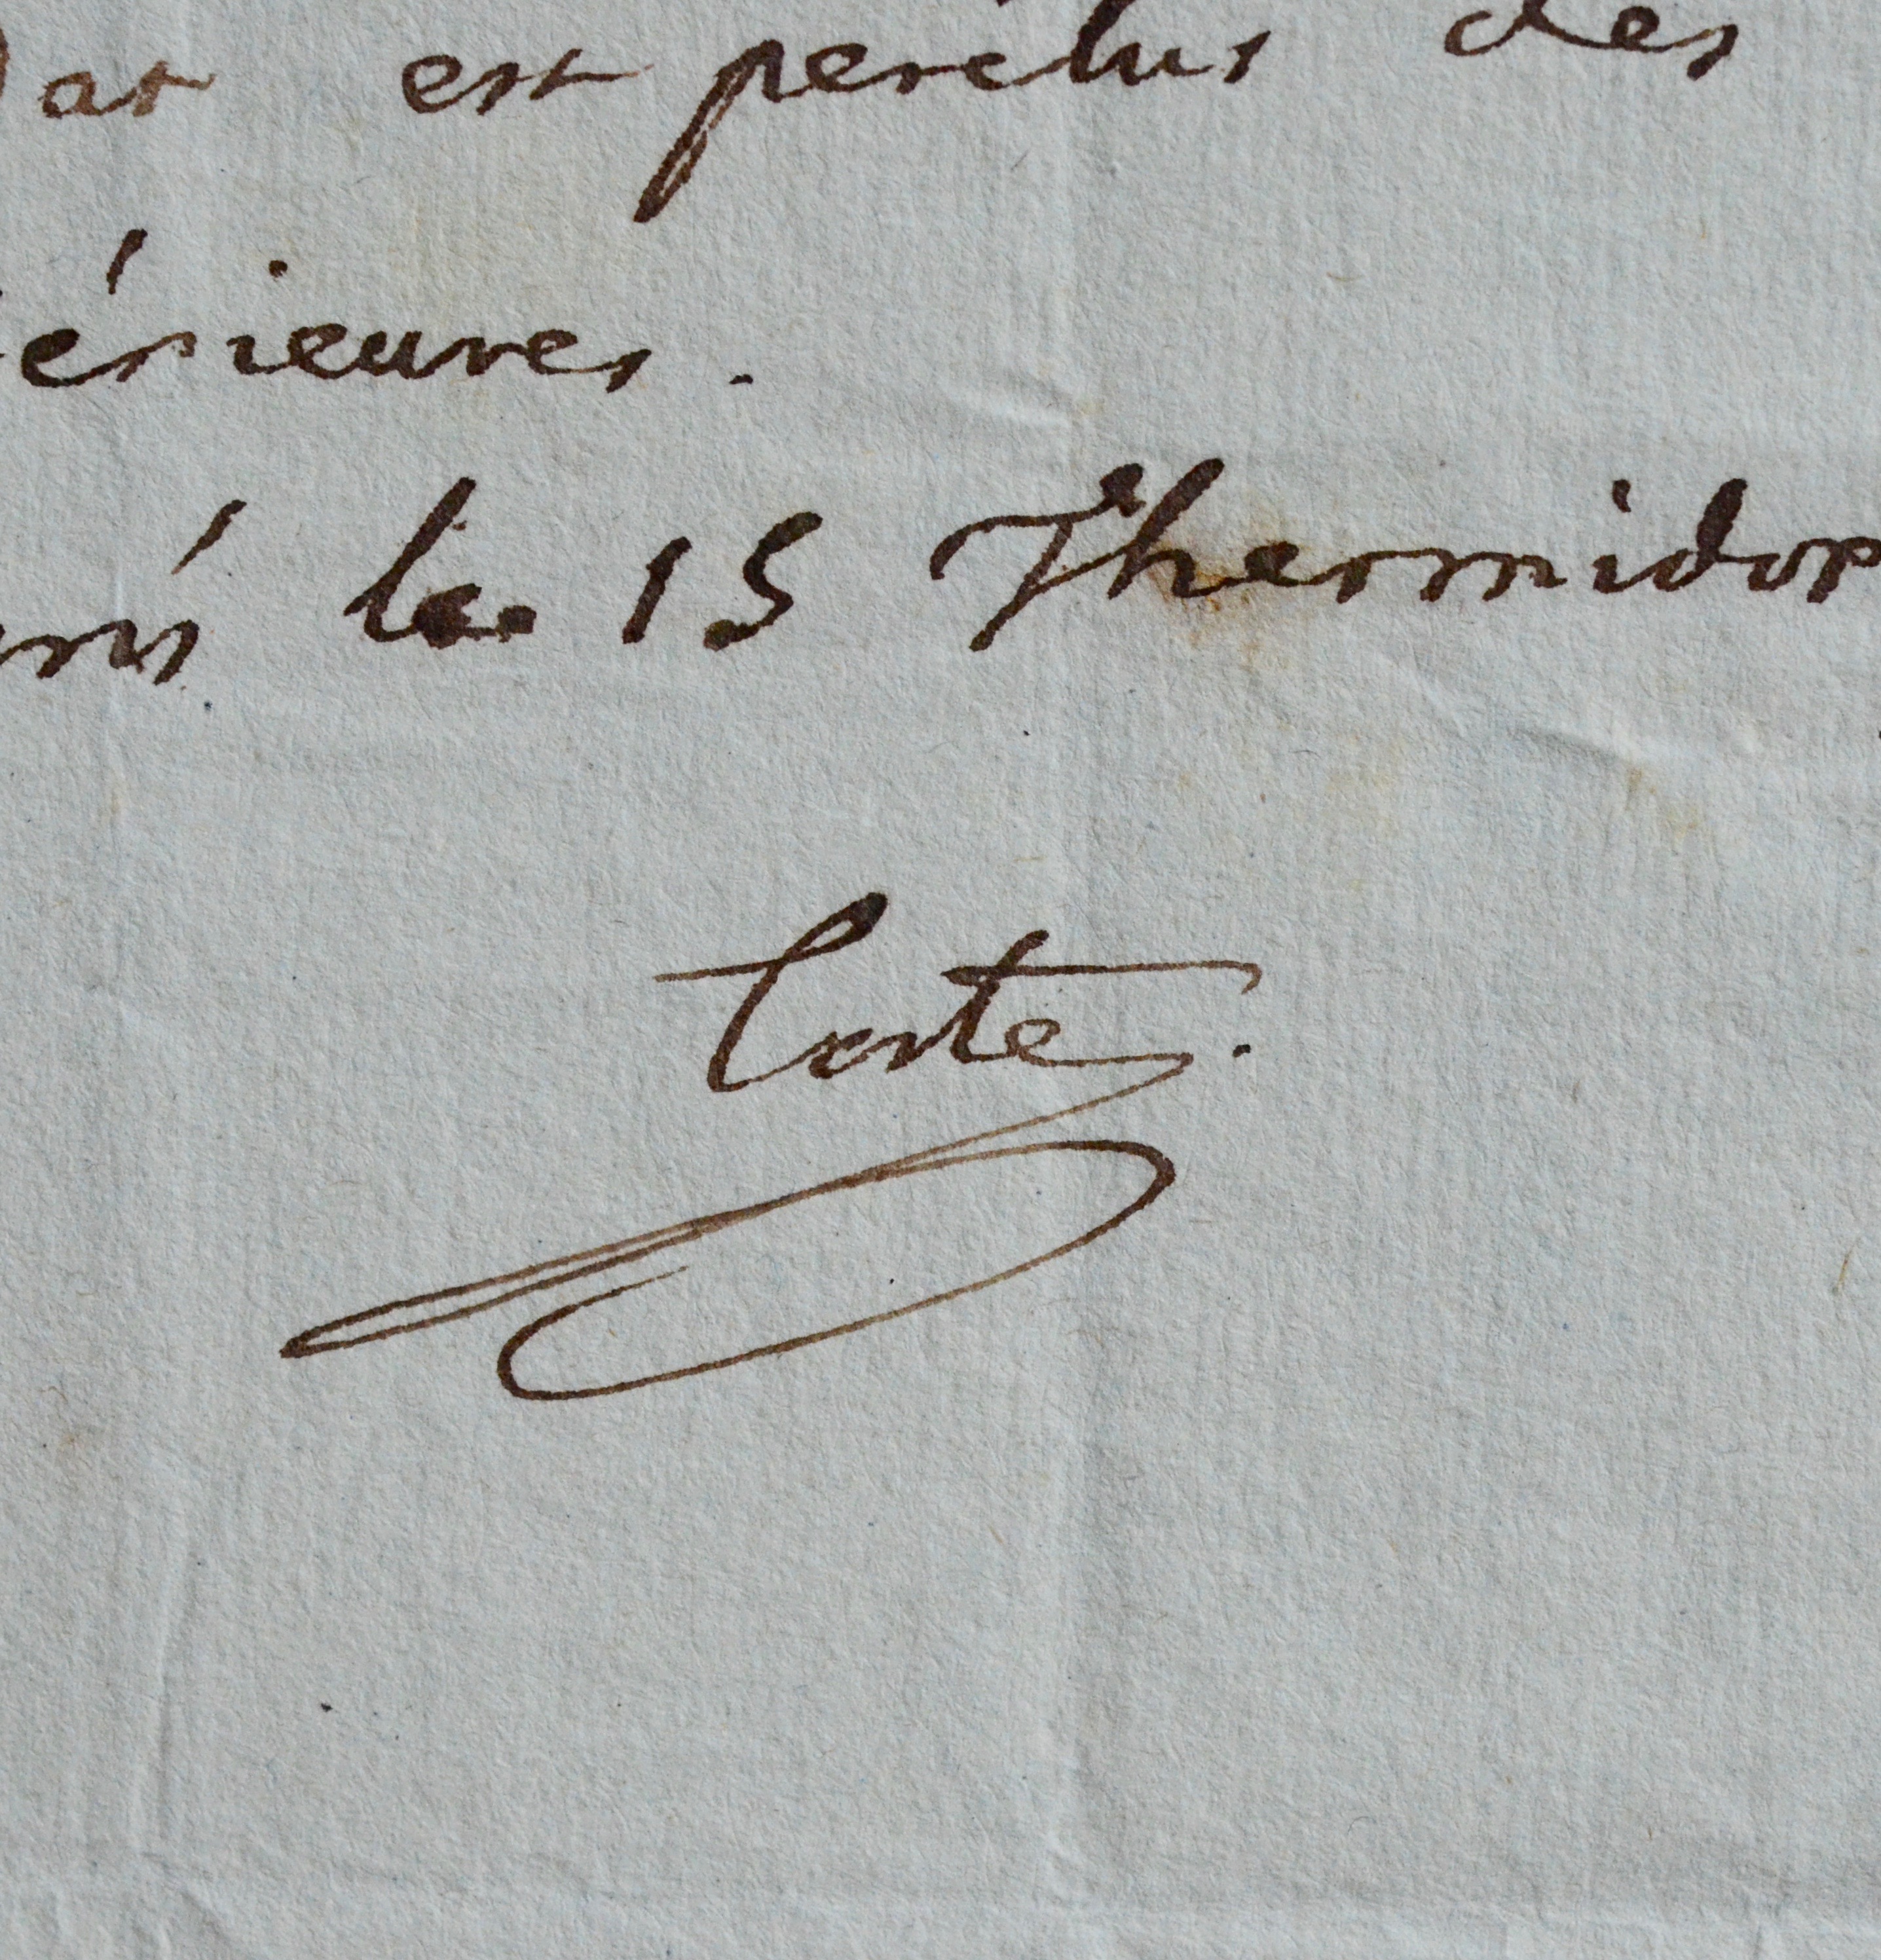 dat est perclus des
érieures.
le 15 Thermidor
Teste.